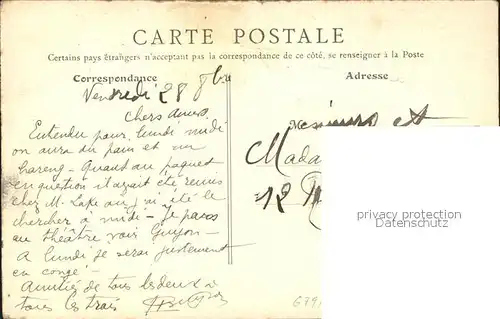 CARTE POSTALE
Certains pays étrangers n'acceptant pas la correspondance de ce côté, se renseigner à la Poste
Correspondance
Adresse
Vendredi 28
Chers amis
Entendu pour lundi midi
on aura du pain et un
hareng - Quant au paquet
en question il avait été remis
chez M. où j'ai été le
chercher à midi - je pars
au théâtre voir Guyon -
A lundi je serai justement
en congé -
Amitiés de tous les deux à
tous les trois
Messieurs et
Mada
12
privacy protection
Datenschutz